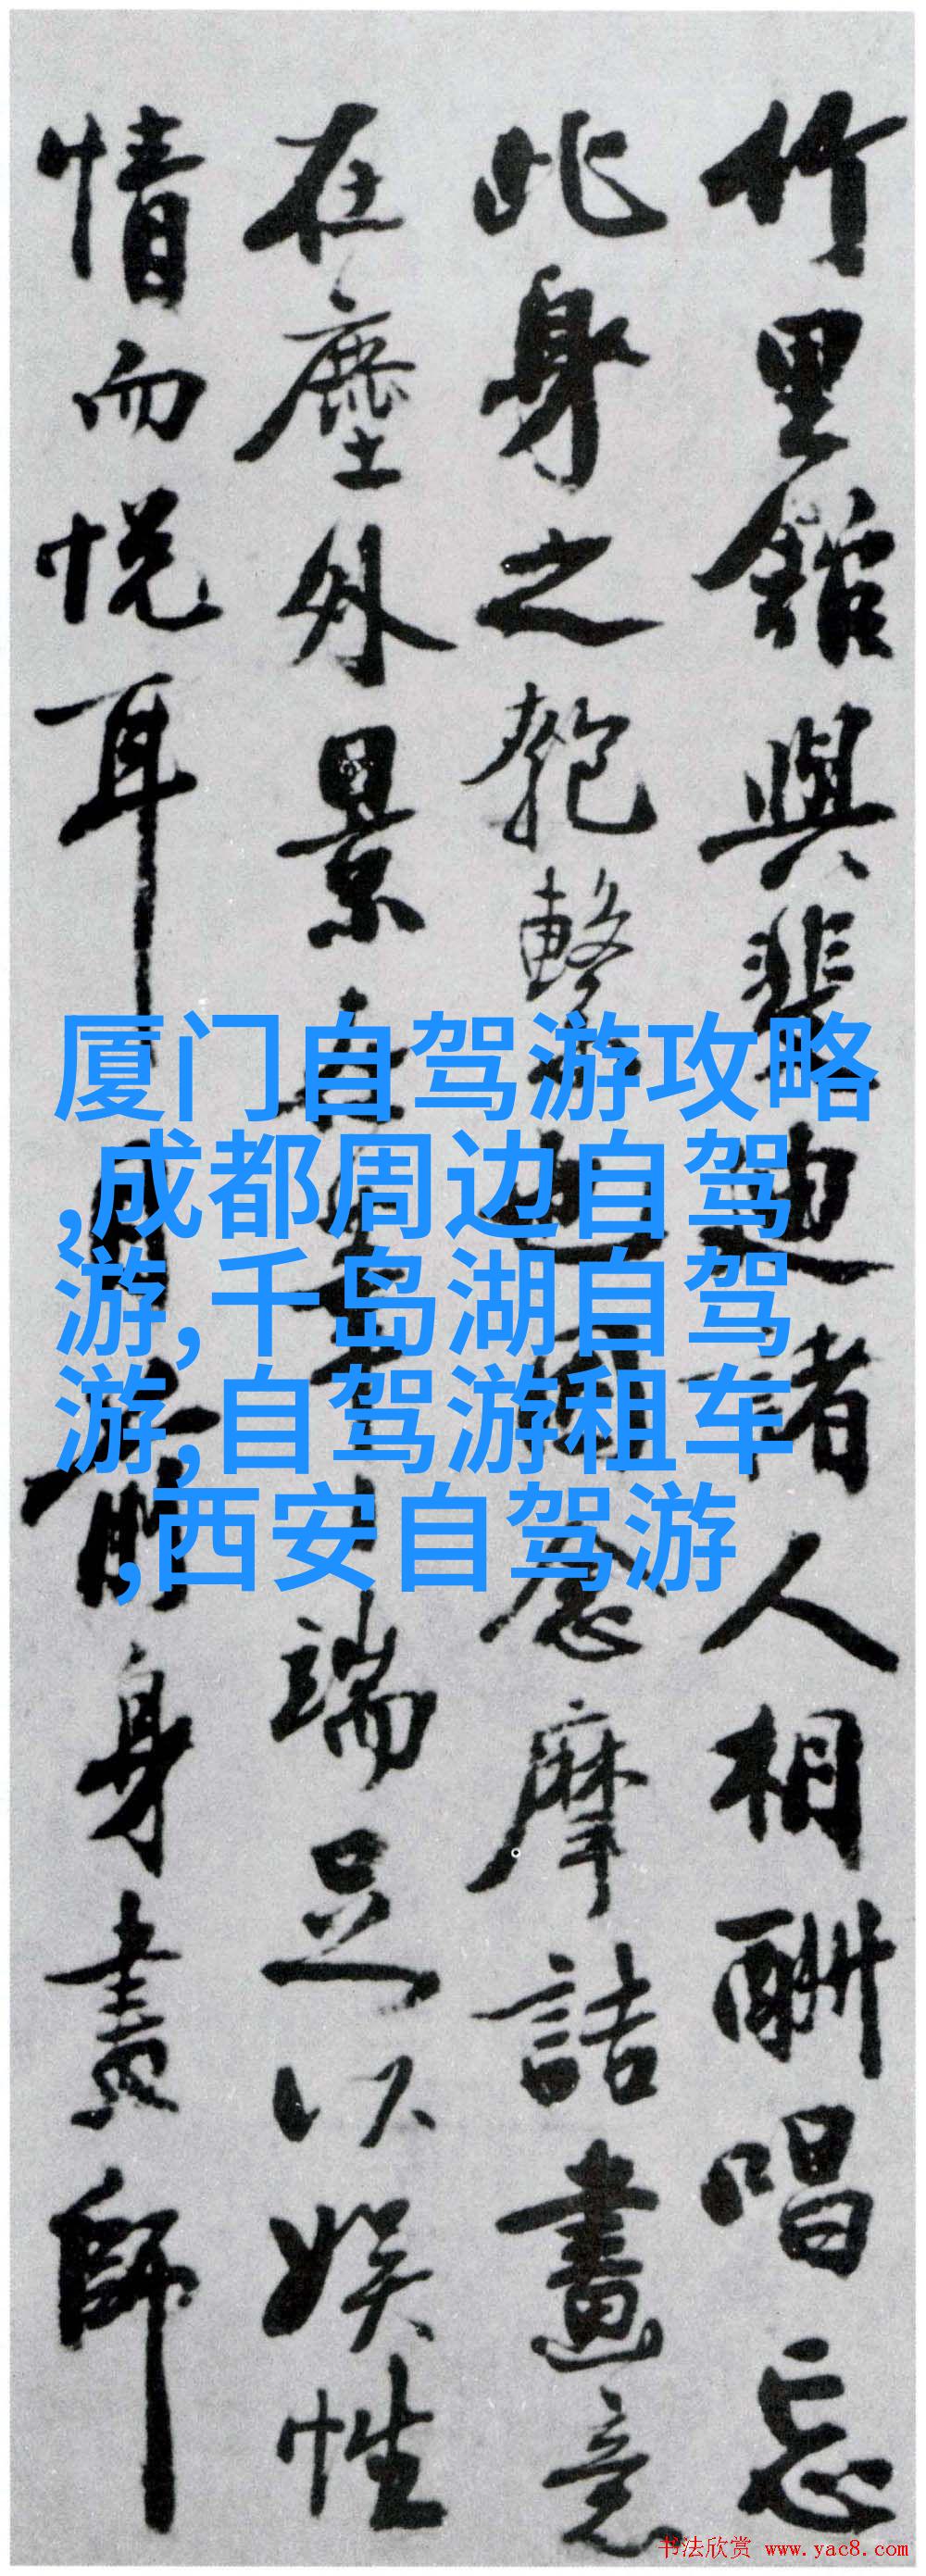 竹里館與裴迪諸人相酬唱忘
此身之匏繫也因念摩詰畫意
在塵外景在筆端足以娛性
情而悅耳目前身畫師
厦门自驾游攻略
,成都周边自驾
游,千岛湖自驾
游,自驾游租车
,西安自驾游
书法欣赏 www.yac8.com